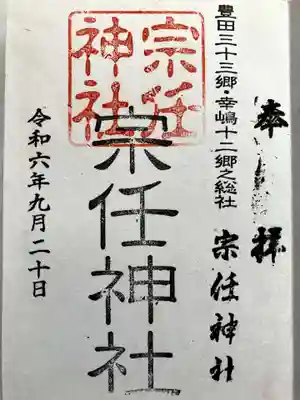 奉拝
豊田三十三郷・幸嶋十二郷之総社
宗任神社
宗任
神社
宗任神社
令和六年九月二十日